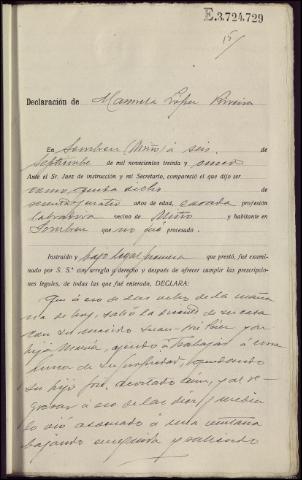 E.3.724.729
15
Declaración de Manuela López Pereira
En Sombreu (Miño) á seis de
Septiembre de mil novecientos treinta y cinco
Ante el Sr. Juez de instrucción y mi Secretario, compareció el que dijo ser
como queda dicho de
años de edad, casada profesión
labradora vecino de Miño y habitante en
Sombreu que no fué procesada.
Instruído y bajo legal que prestó, fué examinado
por S. Sª con arreglo a derecho y después de ofrecer cumplir las prescripciones
legales, de todas las que fué enterada, DECLARA:
Que á eso de las ocho de la mañana
de hoy, salió la declarante de su casa
con su marido Juan y su
hija María, á trabajar á una
finca de su propiedad, quedando
su hijo José acostado aún, y al regresar
á eso de las diez y media
lo vió asomado á una ventana
bajando enseguida y saliendo